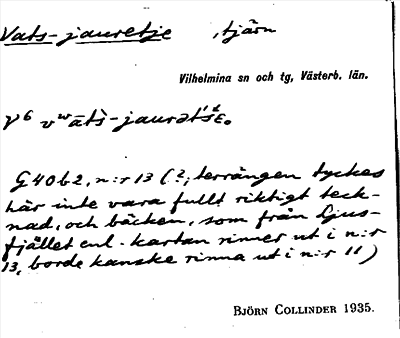 Vats-jauretje, tjärn
Vilhelmina sn och tg, Västerb. län.
G40b2, n:r 13 (?; terrängen tyckes
här inte vara fullt riktigt teck-
nad, och bäcken, som från Ljus-
fjället enl. kartan rinner ut i n:r
13, borde kanske rinna ut i n:r 11)
BJÖRN COLLINDER 1935.